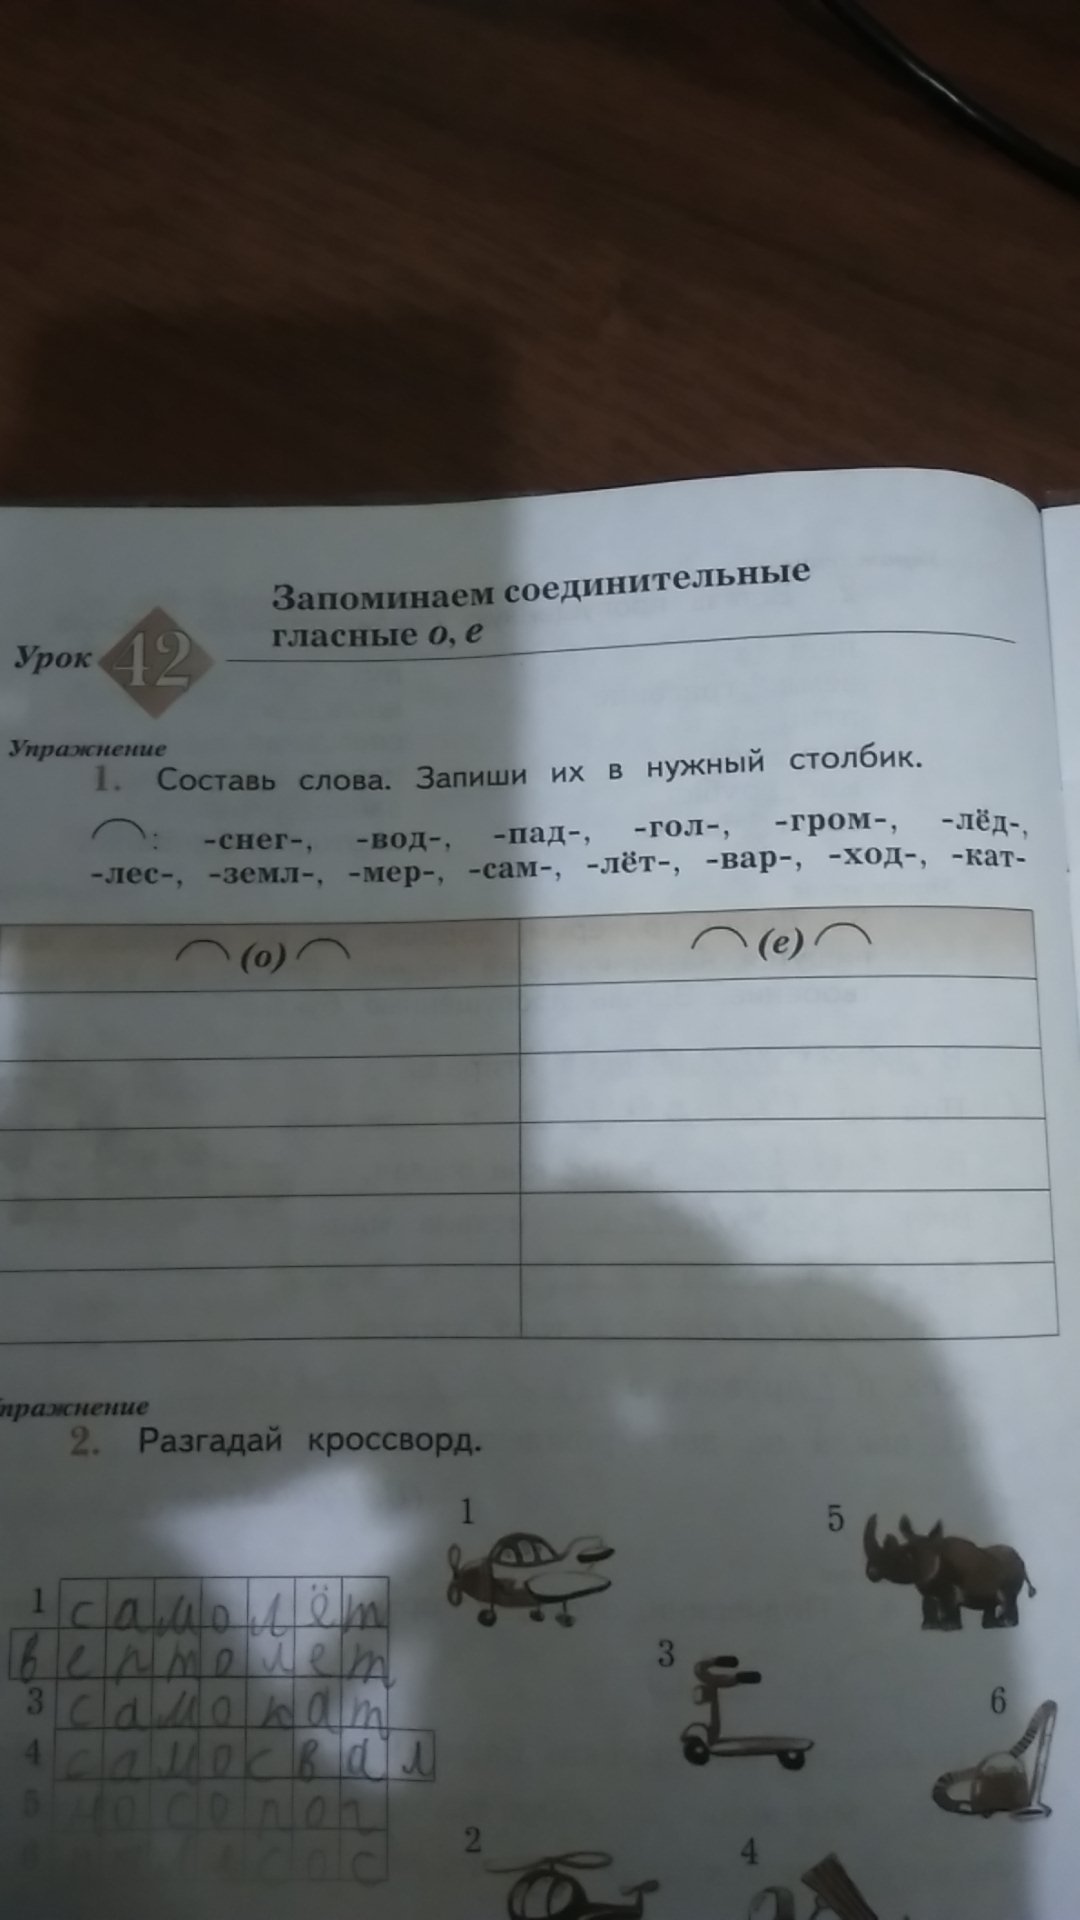 Запоминаем соединительные
Урок 42 гласные о, е
Упражнение
1. Составь слова. Запиши их в нужный столбик.
: -снег-, -вод-, -пад-, -гол-, -гром-, -лёд-,
-лес-, -земл-, -мер-, -сам-, -лёт-, -вар-, -ход-, -кат-
(о) (е)
пражнение
2. Разгадай кроссворд.
1 5
1 самолёт
вертолет
3 6
3 самокат
4 самосвал
5 носорог
2 4